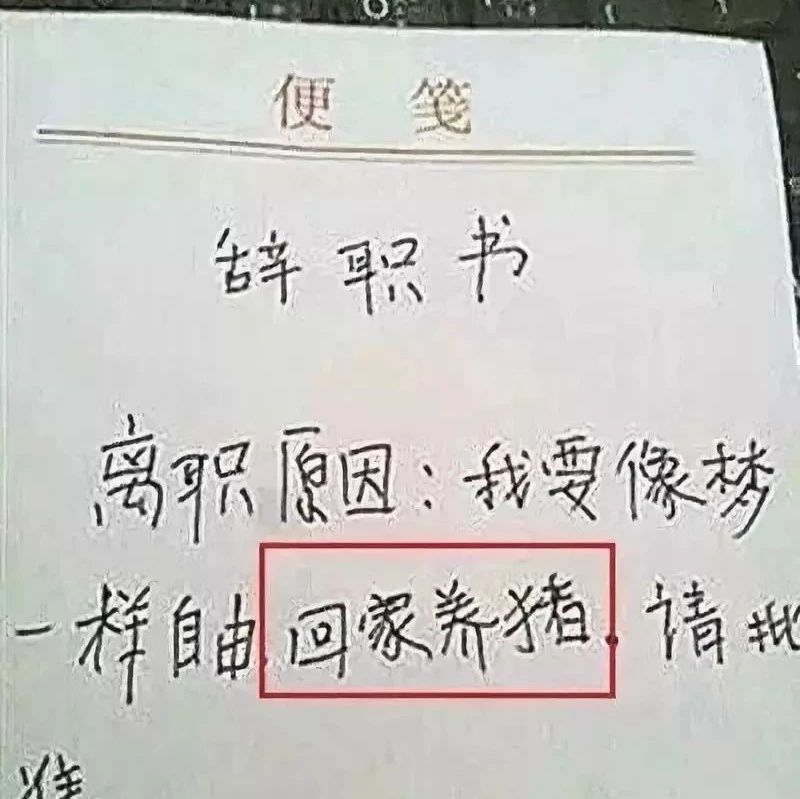 便 笺
辞职书
离职原因：我要像梦
一样自由，回家养猪．请批
准